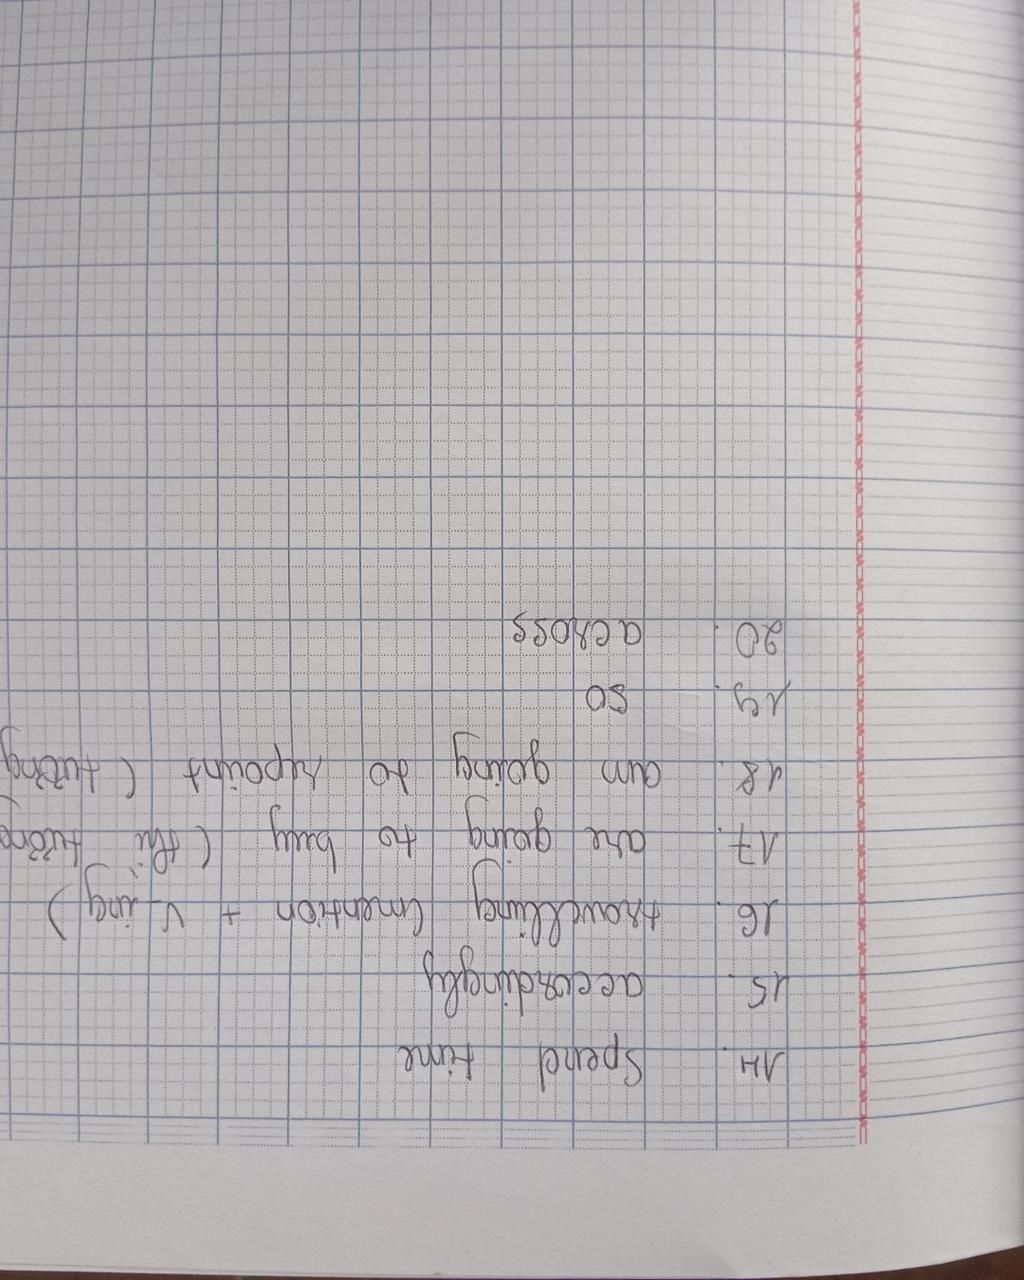 14. Spend time
15. accordingly
16. travelling (mention + V-ing)
17. are going to buy (thì tương
18. am going to repaint (tương
19. so
20. across